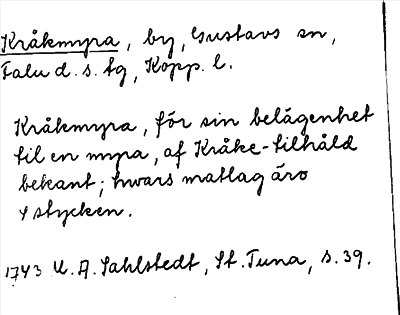 Kråkmyra, by, Gustavs sn,
Falu d. s. tg, Kopp. l.
Kråkmyra, för sin belägenhet
til en myra, af Kråke-tilhåld
bekant; hwars matlag äro
4 stycken.
1743 U. A. Sahlstedt, St. Tuna, s. 39.